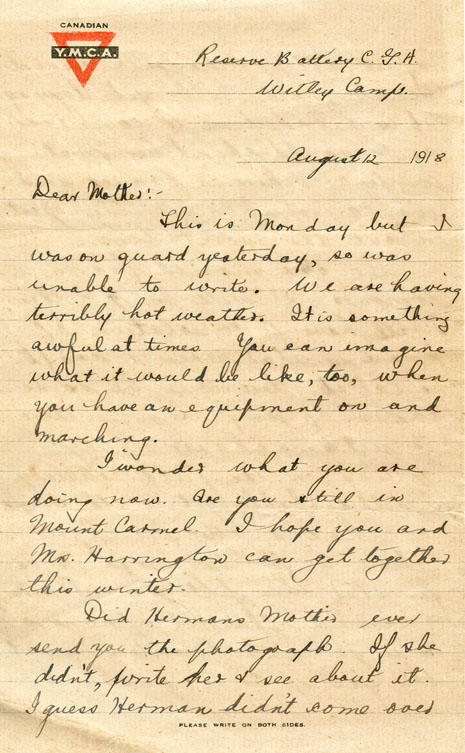 CANADIAN
Y.M.C.A.
Reserve Battery C. F. A.
Witley Camp.
August 12 1918
Dear Mother:-
This is Monday but I
was on guard yesterday, so was
unable to write. We are having
terribly hot weather. It is something
awful at times You can imagine
what it would be like, too, when
you have an equipment on and
marching.
I wonder what you are
doing now. Are you still in
Mount Carmel. I hope you and
Mrs. Harrington can get together
this winter.
Did Hermans Mother ever
send you the photograph. If she
didn't, write her & see about it.
I guess Herman didn't come over
PLEASE WRITE ON BOTH SIDES.